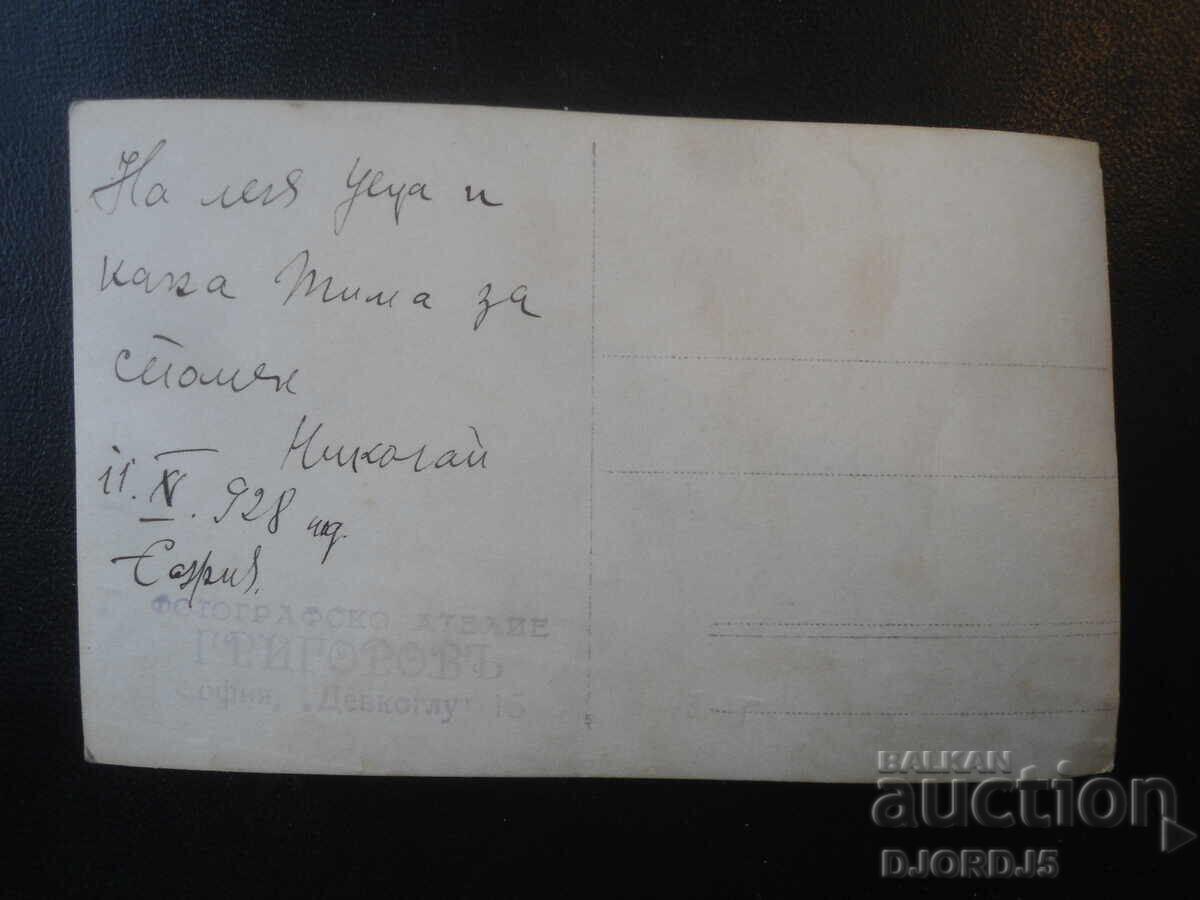 На леля Уеца и
кака Тима за
спомен
Николай
11. XI. 928 год.
София.
ФОТОГРАФСКО АТЕЛИЕ
ГРИГОРОВЪ
София, „Девкоглу" 15
BALKAN
auction
DJORDJ5